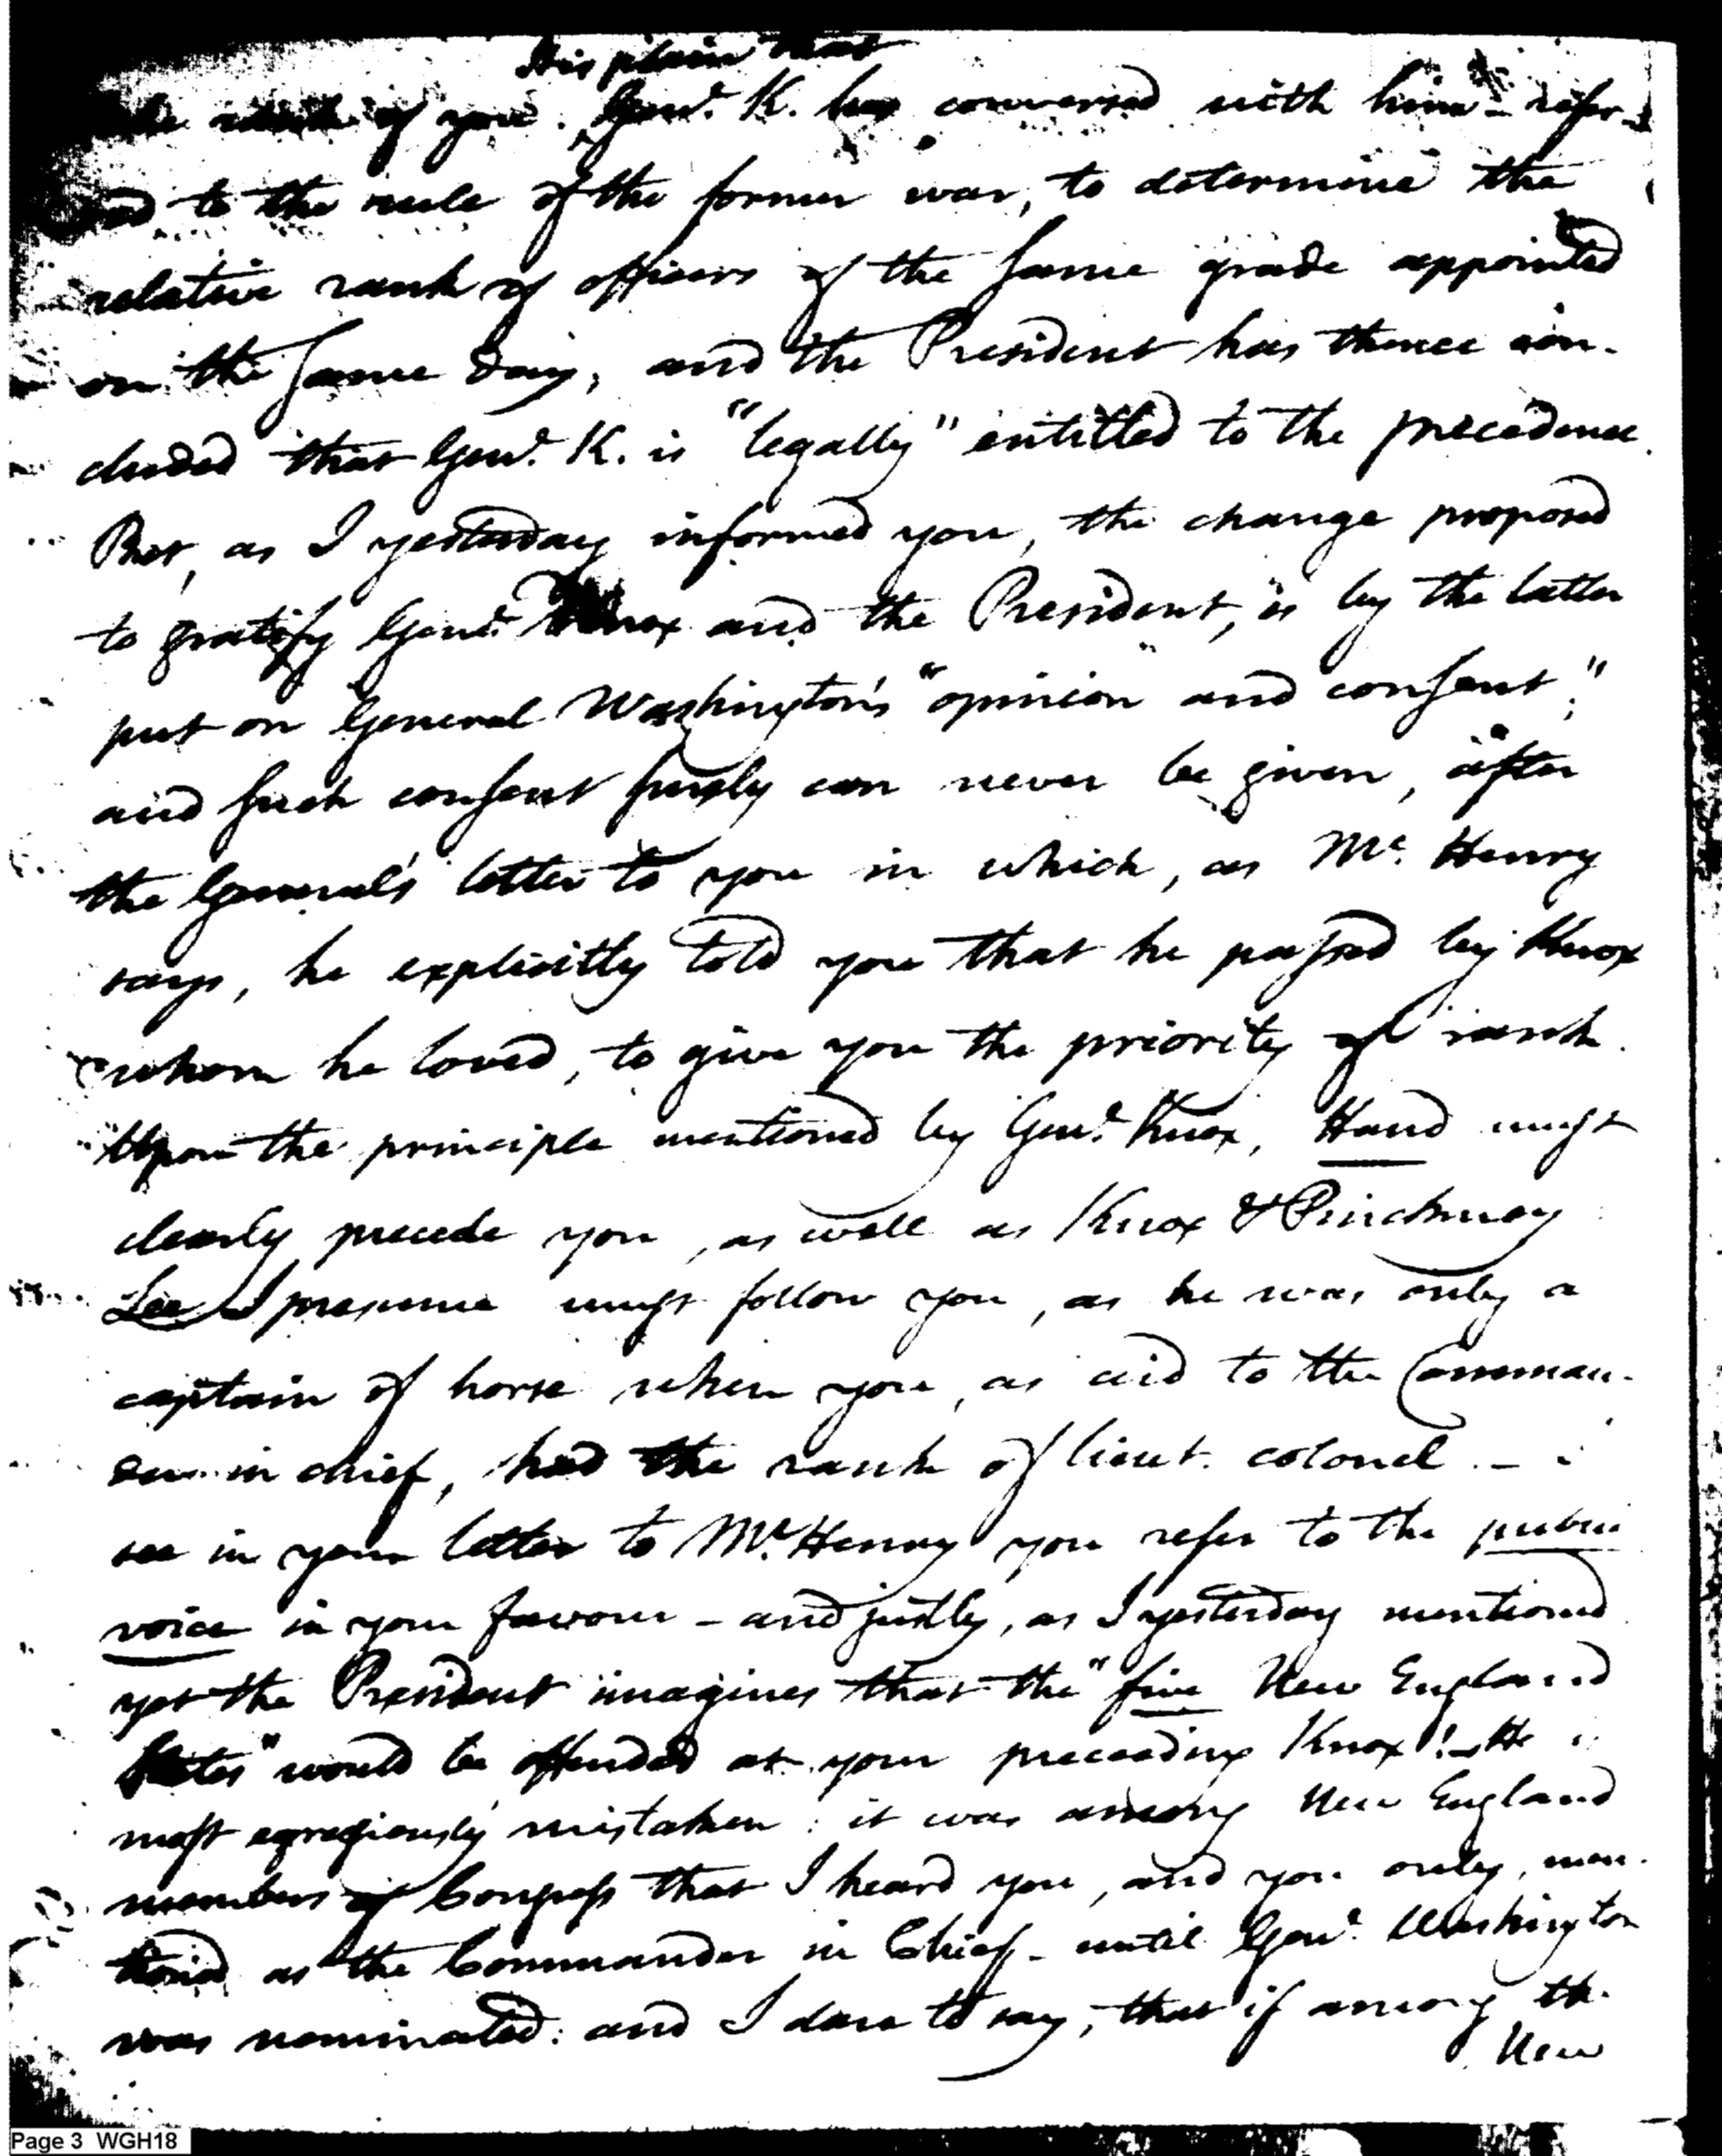 It is plain that
the rank of you. Genl. K. has conversed with him - refer-
red to the rule of the former war, to determine the
relative rank of officers of the same grade appointed
on the same day, and the President has thence con-
cluded that Genl. K. is "legally" entitled to the precedence.
But, as I yesterday informed you, the change proposed
to gratify Genl. Knox and the President, is by the latter
put on General Washington's "opinion" and consent;"
and such consent surely can never be given, after
the General's letter to you in which, as Mc. Henry
says, he explicitly told you that he passed by Knox
whom he loved, to give you the priority of rank.
Upon the principle mentioned by Genl. Knox, Hand must
clearly precede you, as well as Knox & Pinckney
Lee I presume must follow you, as he was only a
captain of horse when you, as aid to the Comman-
der in chief, had the rank of lieut. colonel. -
see in your letter to Mc. Henry you refer to the public
voice in your favour - and justly, as I yesterday mentioned
yet the President imagines that the "five New England
States" would be offended at your preceeding Knox! - He is
most egregiously mistaken: it was among New England
members of Congress that I heard you, and you only, men-
tioned as the Commander in Chief - until Genl. Washington
was nominated: and I dare to say, that if among the
New
Page 3 WGH18